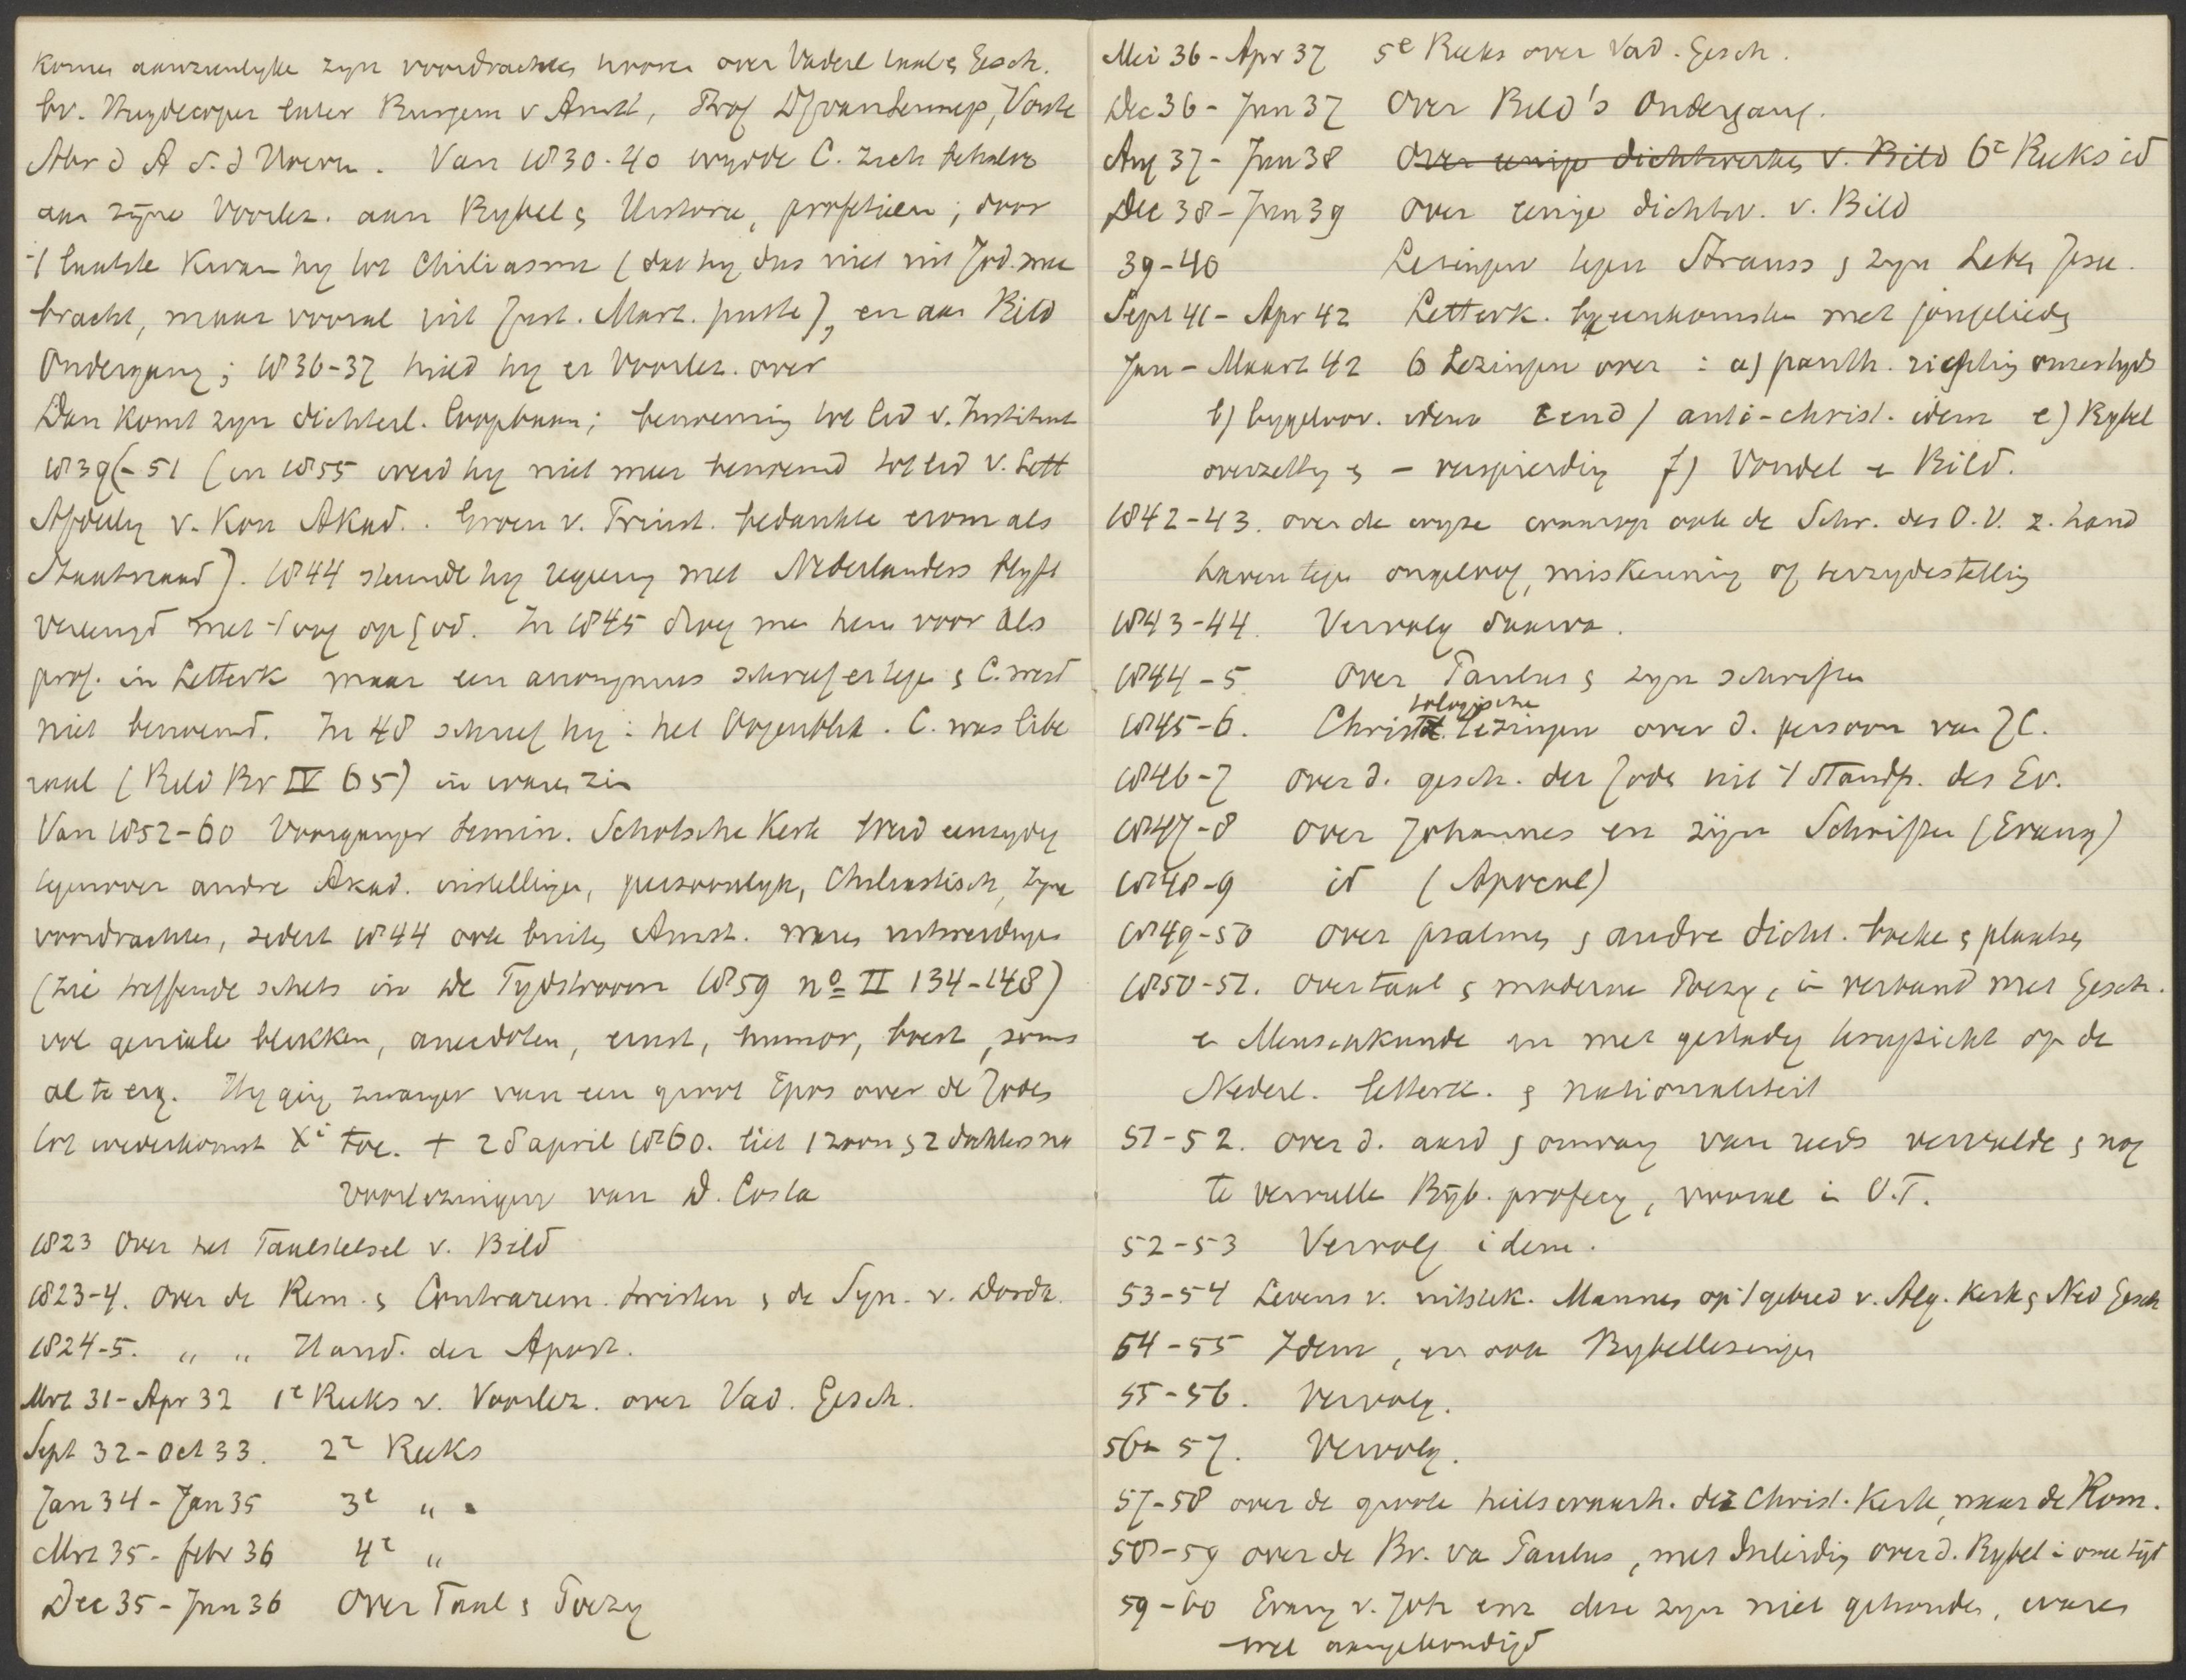 komen aanzienlyke zyn voordrachten hooren over Vaderl taal & Gesch.
bv. Huydecoper later Burgem v Amst, Prof DJ van Lennep, Vorste
Abr d A v. d Hoeven. Van 1830-40 wydde C. zich behalve
aan zyne Voorlez. aan Bybel & Historie, profetieen; door
't laatste kwam hy tot Chiliasme (dat hy dus niet uit Jod. mee
bracht, maar vooral uit Just. Mart. putte), en aan Bild
Ondergang; 1836-37 hield hy er Voorlez. over
Dan komt zyn dichterl. loopbaan; benoeming tot lid v. Instituut
1839(-51 (in 1855 werd hy niet meer benoemd tot lid v. Lett
Afdeeling v. Kon Akad.. Groen v. Prinst. bedankte erom als
Staatsraad). 1844 steunde hy regeering met Nederlanders blyft
vereenigd met 't oog op God. In 1845 droeg men hem voor als
prof. in Letterk maar een anonymus schreef er tegen & C. werd
niet benoemd. In 48 schreef hy: het Oogenblik. C. was libe
raal (Bild Br IV 65) in waren zin
Van 1852-60 Voorganger Semin. Schotsche Kerk trad eenzydig
tegenover andre Akad. instellingen, persoonlyk, Chiliastisch, zyne
voordrachten, sedert 1844 ook buiten Amst. waren uitweidingen
(zie treffende schets in de Tydstroom 1859 no II 134-148)
vol geniale blikken, anecdoten, ernst, humor, boert, soms
al te erg. Hy ging zwanger van een groot Epos over de Joden
tot wederkomst Xi toe. + 28 april 1860. liet 1 zoon & 2 dochters na
Voorlezingen van D. Costa
1823 Over het Taalstelsel v. Bild
1823-4. Over de Rem. & Contrarem. twisten & de Syn. v. Dordr.
1824-5. " " Hand. der Apost.
Mrt 31-Apr 32 1e Reeks v. Voorlez. over Vad. Gesch.
Sept 32-Oct 33. 2e Reeks
Jan 34-Jan 35 3e "
Mrt 35-febr 36 4e "
Dec 35-Jun 36 Over Taal & Poezy
Mei 36-Apr 37 5e Reeks over Vad. Gesch.
Dec 36-Jun 37 Over Bild's Ondergang.
Aug 37-Jun 38 Over eenige dichtwerken v. Bild 6e Reeks id
Dec 38-Jun 39 Over eenige dichtw. v. Bild
39-40 Lezingen tegen Strauss & zyn Leben Jesu.
Sept 41-Apr 42 Letterk. byeenkomsten met jongelieden
Jan-Maart 42 6 Lezingen over: a) panth. richting onzes tyds
b) bygeloov. idem c en d) anti-christ. idem e) Bybel
overzetting & -verspreiding f) Vondel en Bild.
1842-43. over de wyze waarop ook de Schr. des O.V. z. hand
haven tegen ongeloof, miskenning of terzydestelling
1843-44. Vervolg daarvan.
1844-5 Over Paulus & zyn schriften
1845-6. Christologische Lezingen over d. persoon van JC.
1846-7 over d. gesch. der Joden uit 't standp. des Ev.
1847-8 over Johannes en zijn Schriften (Evang)
1848-9 id (Apocal)
1849-50 over psalmen & andre dicht. boeken & plaatsen
1850-51. Over taal & moderne Poezy, in verband met Gesch.
en Menschkunde en met gestadig terugzicht op de
Nederl. letterk. & nationaliteit
51-52. over d. aard & omvang van reeds vervulde & nog
te vervullen Bijb. profecy, vooral in O.T.
52-53 Vervolg idem.
53-54 Levens v. uitstek. Mannen op 't gebied v. Alg. Kerk & Ned Gesch
54-55 Idem, en ook Bybellezingen
55-56. Vervolg.
56-57. Vervolg.
57-58 over de groote heilswaarh. der Christ. Kerk, naar de Rom.
58-59 over de Br. van Paulus, met Inleiding over d. Bybel in onze tijd
59-60 Evang v. Joh enz deze zyn niet gehouden, waren
wel aangekondigd